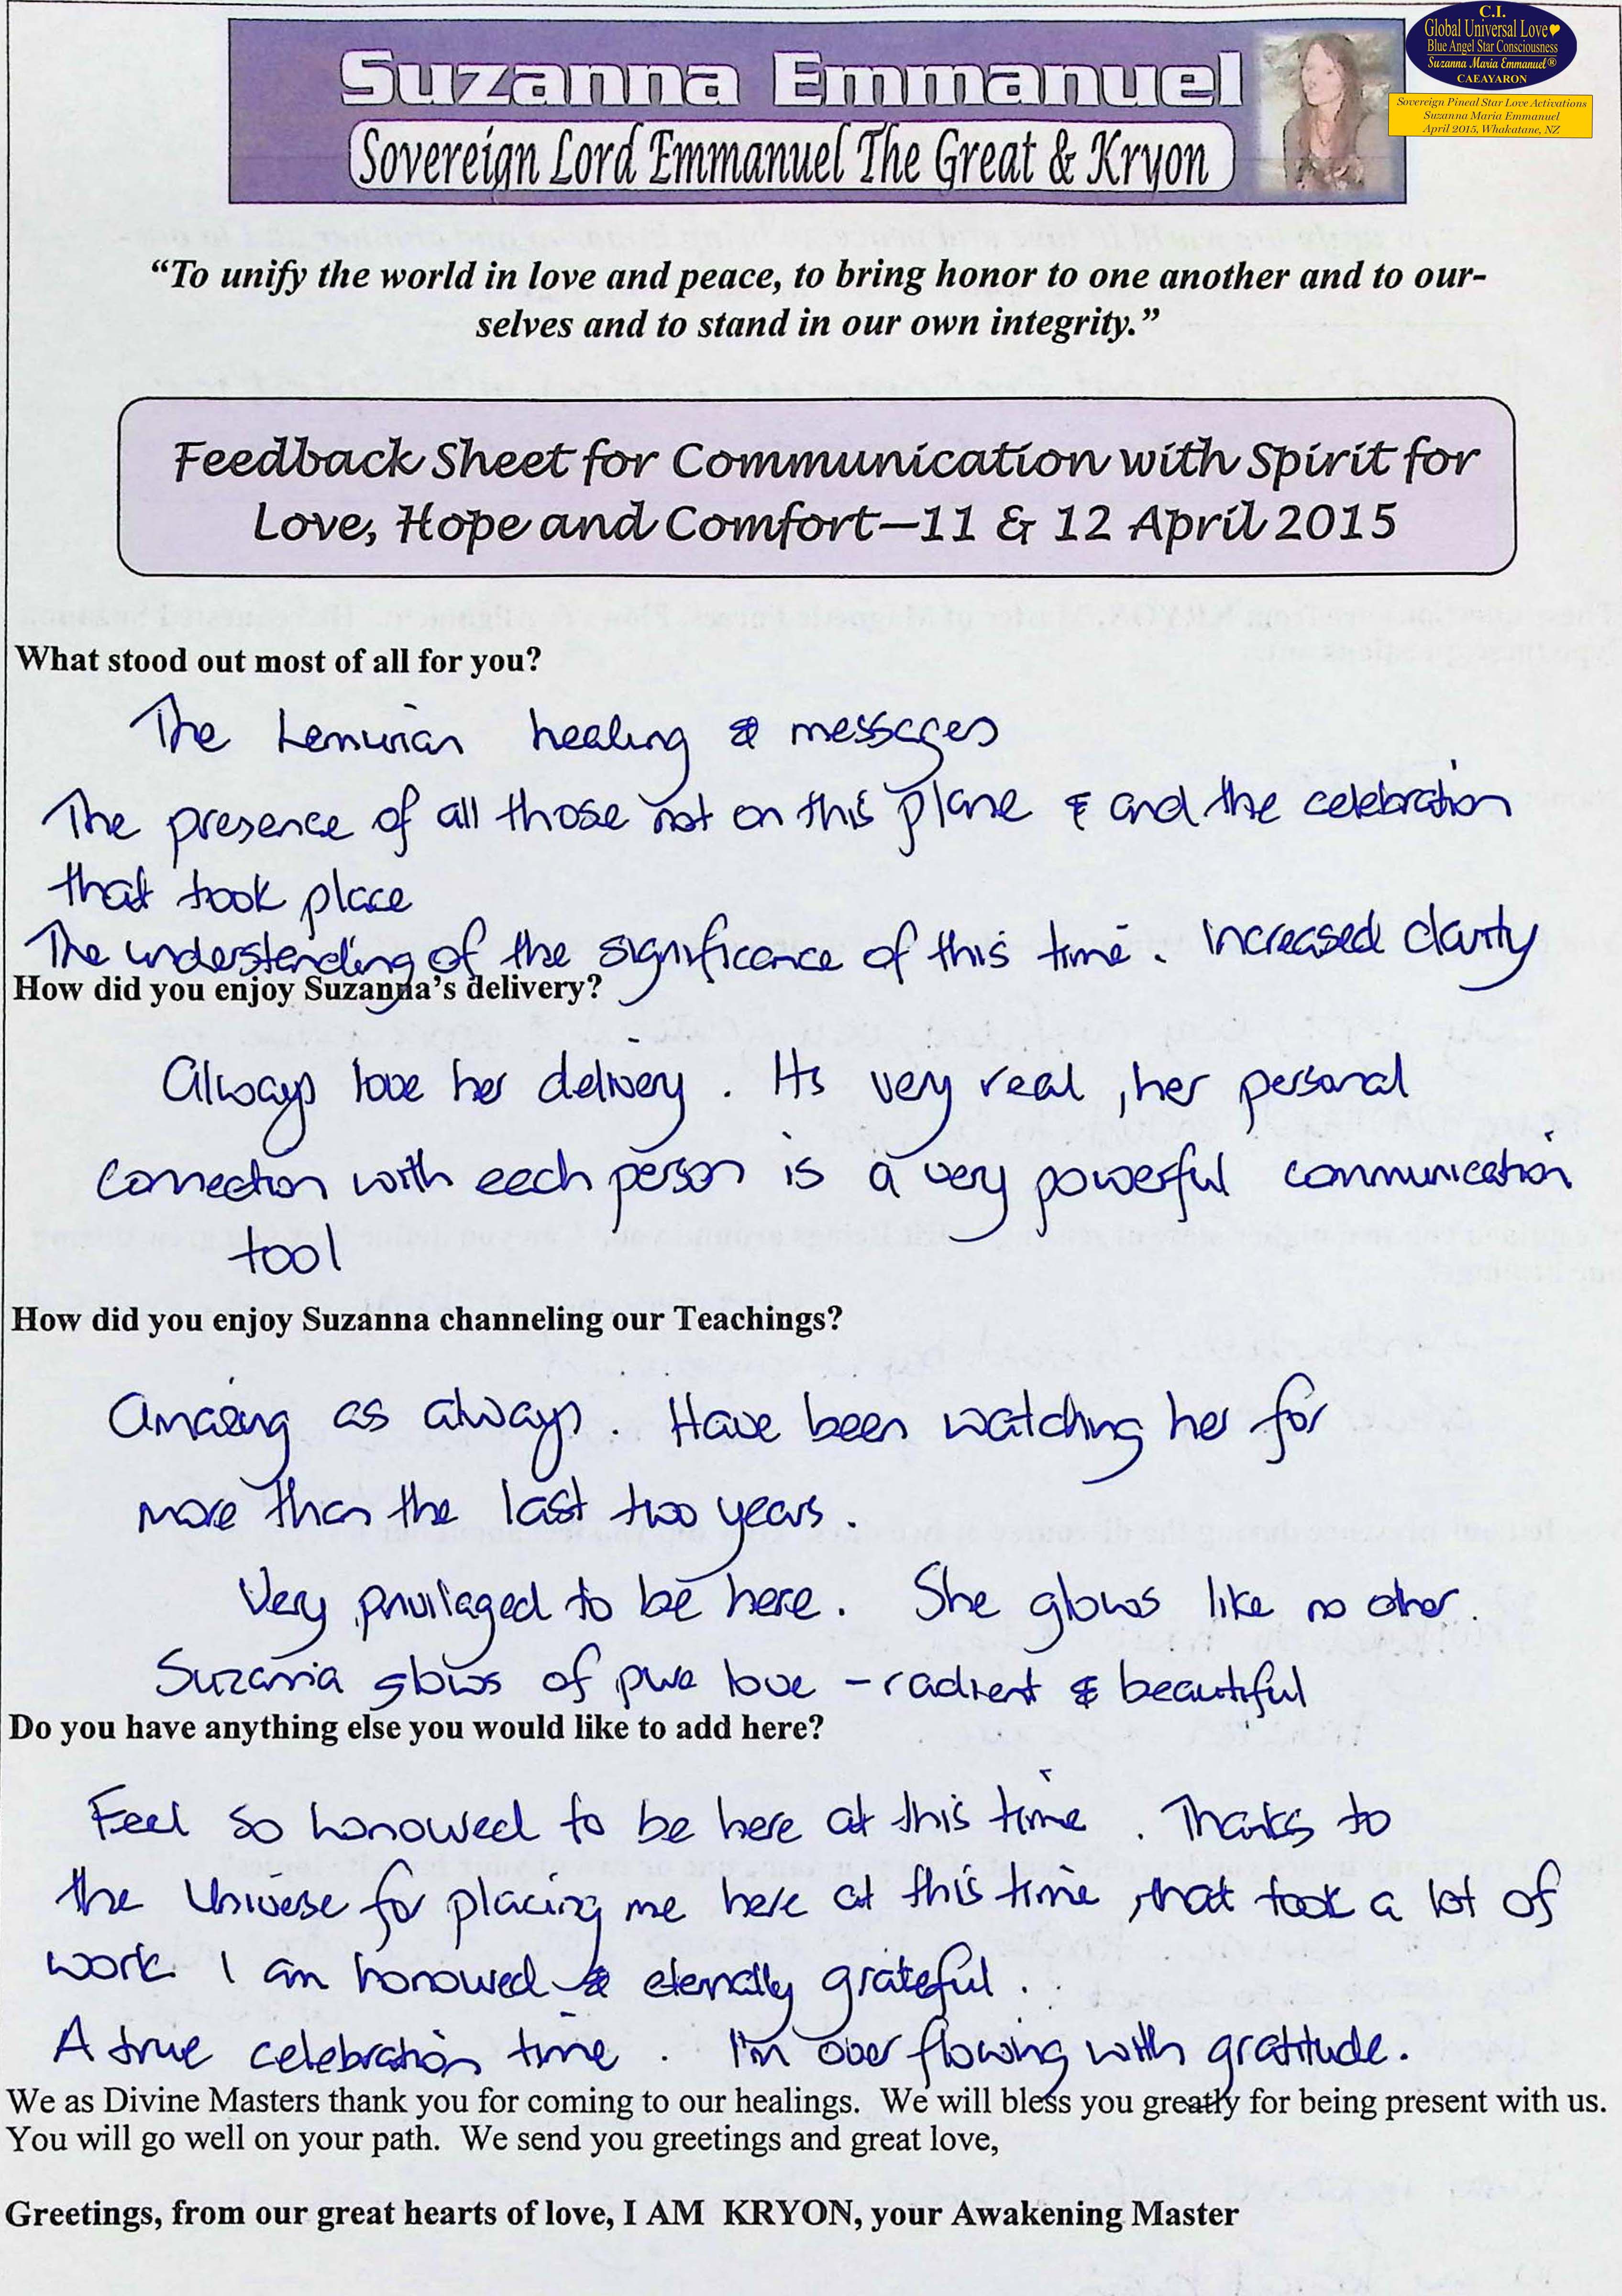 C.I.
Global Universal Love
Blue Angel Star Consciousness
Suzanna Maria Emmanuel®
CAEAYARON
Sovereign Pineal Star Love Activations
Suzanna Maria Emmanuel
April 2015, Whakatane, NZ
Suzanna Emmanuel
Sovereign Lord Emmanuel The Great & Kryon
“To unify the world in love and peace, to bring honor to one another and to our-
selves and to stand in our own integrity.”
Feedback Sheet for Communication with Spirit for
Love, Hope and Comfort—11 & 12 April 2015
What stood out most of all for you?
The Lemurian healing & messages
The presence of all those not on this plane & and the celebration
that took place
The understanding of the significance of this time. Increased clarity
How did you enjoy Suzanna's delivery?
Always love her delivery. Its very real, her personal
connection with each person is a very powerful communication
tool
How did you enjoy Suzanna channeling our Teachings?
Amazing as always. Have been watching her for
more than the last two years.
Very privilaged to be here. She glows like no other.
Suzanna glows of pure love - radient & beautiful
Do you have anything else you would like to add here?
Feel so honoured to be here at this time. Thanks to
the Universe for placing me here at this time, that took a lot of
work. I am honoured & eternally grateful.
A true celebration time. I'm over flowing with gratitude.
We as Divine Masters thank you for coming to our healings. We will bless you greatly for being present with us.
You will go well on your path. We send you greetings and great love,
Greetings, from our great hearts of love, I AM KRYON, your Awakening Master